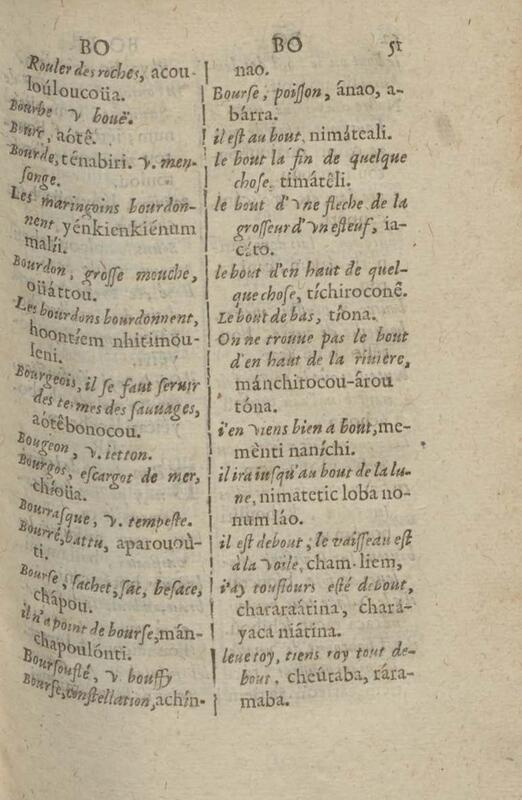 BO
Rouler des roches, acou-
loúloucoüa.
Bourbe v bouë.
Bourg, aótê.
Bourde, ténabiri. v. men-
songe.
Les maringoins bourdon-
nent, yénkienkiénum
malíi.
Bourdon, grosse mouche,
oüáttou.
Les bourdons bourdonnent,
hoontíem nhitimou-
leni.
Bourgeois, il se faut seruir
des termes des sauuages,
aótêbonocou.
Bougeon, v. ietton.
Bourgos, escargot de mer,
chíoüa.
Bourrasque, v. tempeste.
Bourré, battu, aparouoù-
ti.
Bourse, sachet, sac, besace,
chápou.
il n'a point de bourse, mán-
chapoulónti.
Boursouflé, v. bouffy
Bourse, constellation, achín-
BO 51
nao.
Bourse, poisson, ánao, a-
bárra.
il est au bout, nimáteali.
le bout la fin de quelque
chose, timátêli.
le bout d'vne fleche de la
grosseur d'vn esteuf, ia-
cáto.
le bout d'en haut de quel-
que chose, tíchiroconê.
Le bout de bas, tíona.
On ne trouue pas le bout
d'en haut de la riuiere,
mánchitocou-árou
tóna.
i'en viens bien à bout, me-
mènti naníchi.
il ira iusqu'au bout de la lu-
ne, nimatetic loba no-
num láo.
il est debout, le vaisseau est
à la voile, cham-líem,
i'ay tousiours esté debout,
chararaátina, chará-
yaca niátina.
leue toy, tiens toy tout de-
bout, cheûtaba, rára-
maba.